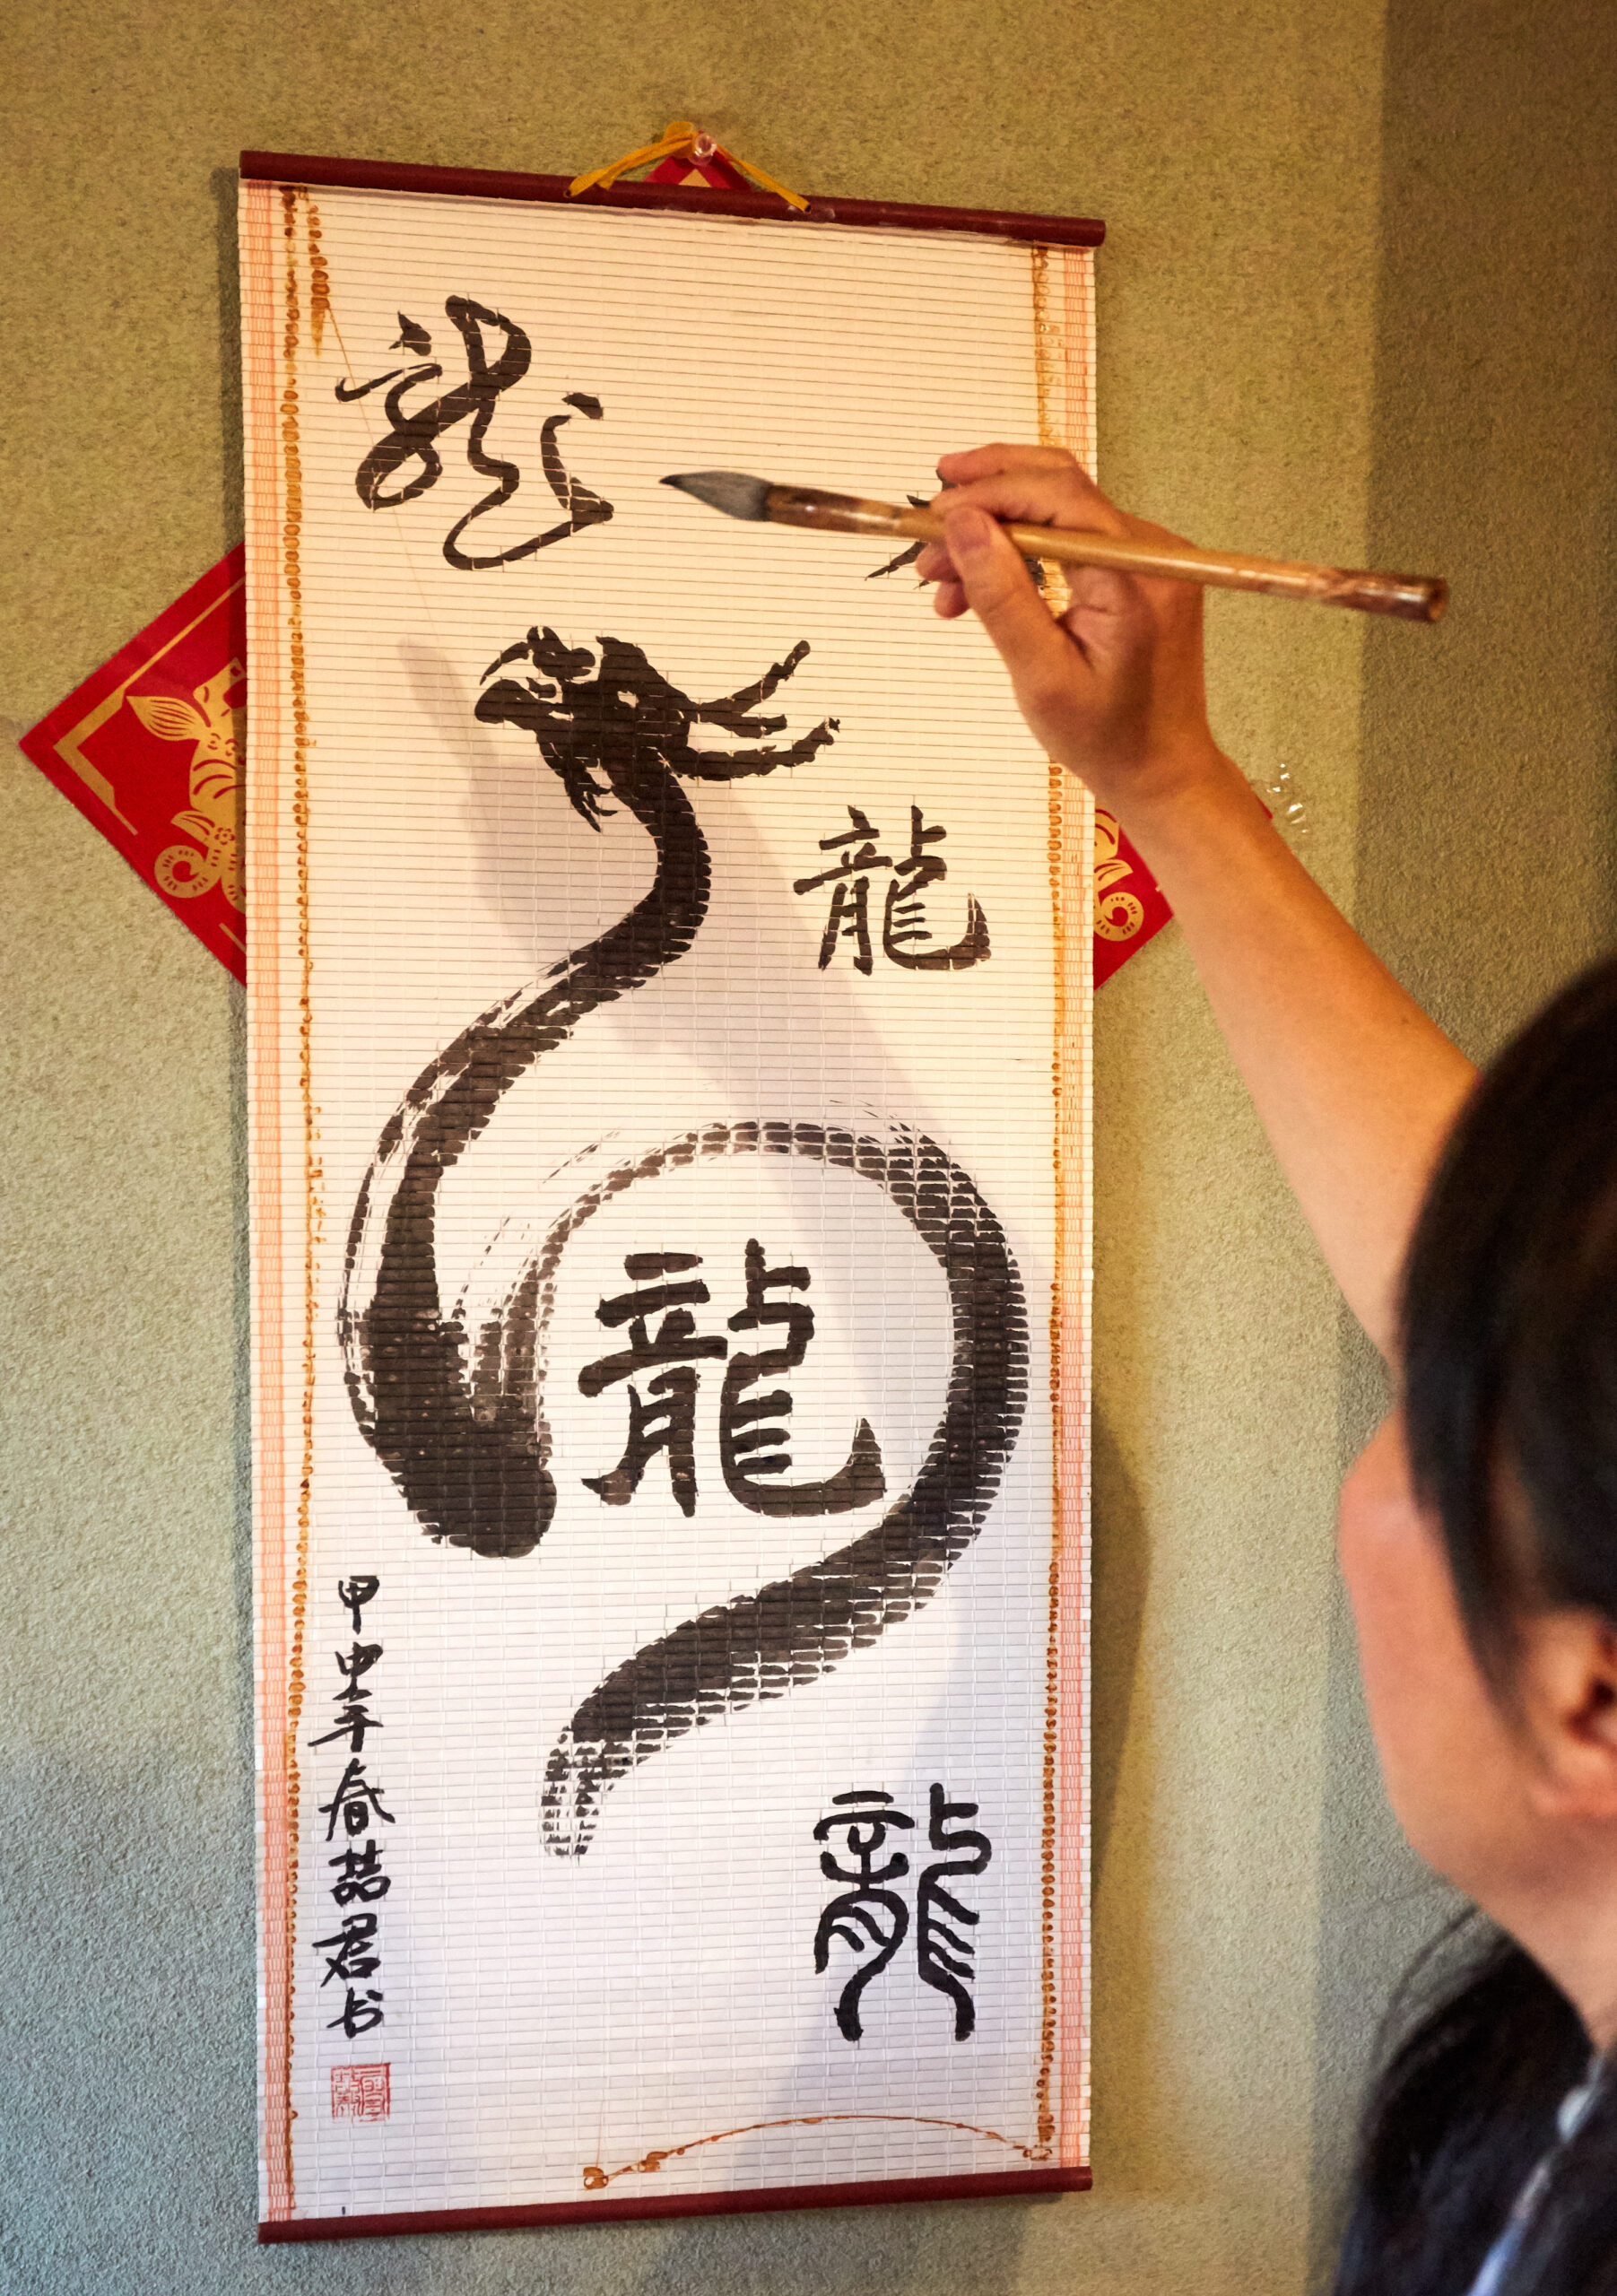 龍
龍
龍
龍
甲申年春喆君书